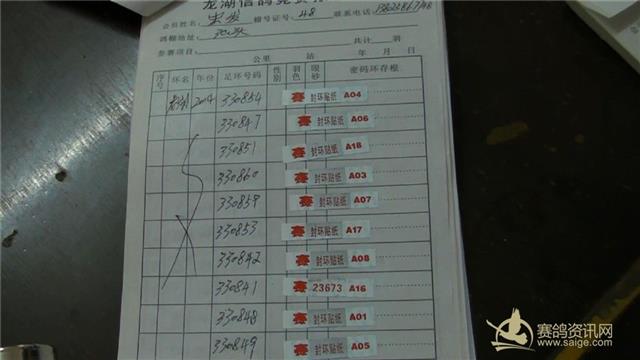 龙湖信鸽竞赛
会员姓名: 棚号证号: 48 联系电话:
鸽棚地址: 共计 羽
参赛项目: 公里 站 年 月 日
序号 环名 年份 足环号码 性别 羽色 眼砂 密码环存根
2014 330854 赛 封环贴纸 A04
330847 赛 封环贴纸 A06
330851 赛 封环贴纸 A18
330860 赛 封环贴纸 A03
330859 赛 封环贴纸 A07
330853 赛 封环贴纸 A17
330842 赛 封环贴纸 A08
330841 赛 23673 A16
330848 赛 封环贴纸 A01
330849 赛 封环贴纸 A05
赛鸽资讯网
www.saige.com